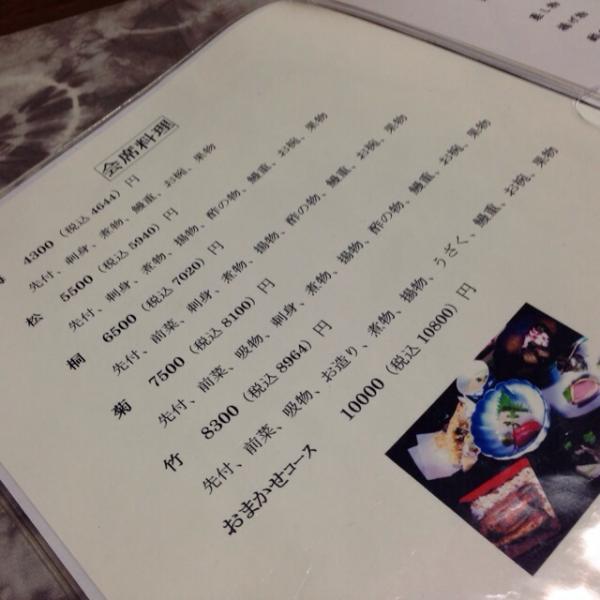 会席料理
4300（税込 4644）円
先付、刺身、煮物、鰻重、お椀、果物
松 5500（税込 5940）円
先付、刺身、煮物、揚物、酢の物、鰻重、お椀、果物
桐 6500（税込 7020）円
先付、前菜、刺身、煮物、揚物、酢の物、鰻重、お椀、果物
菊 7500（税込 8100）円
先付、前菜、吸物、刺身、煮物、揚物、酢の物、鰻重、お椀、果物
竹 8300（税込 8964）円
先付、前菜、吸物、お造り、煮物、揚物、うざく、鰻重、お椀、果物
おまかせコース 10000（税込 10800）円
蒸し物
揚げ物